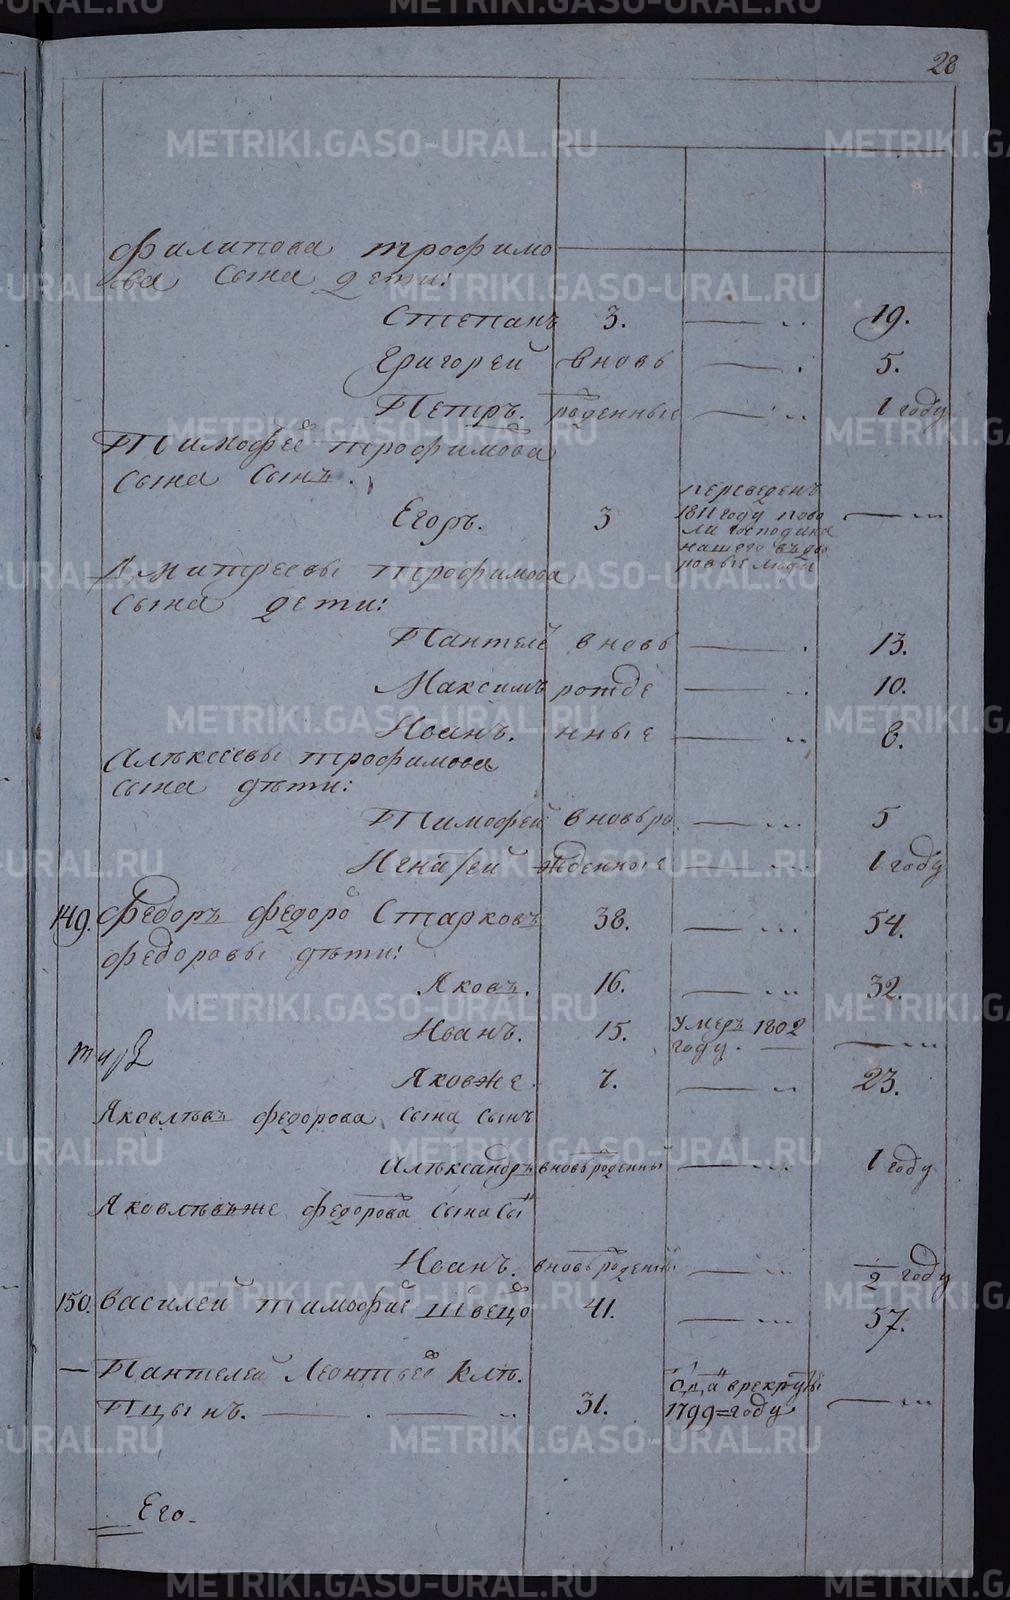 28
Филипова трофимо
ва сына дети:
Степанъ 3. — 19.
Григорей вновь — 5.
Петръ. роденные — 1 году
Тимофей трофимова
сына сынъ.
Егоръ. 3 переведенъ 1811 году пово
ли господина
нашего въ дво
ровые люди
Дмитреевы трофимова
сына дети:
Пантелей вновь — 13.
Максимъ рожде — 10.
Иванъ. нные — 8.
Алѣксеевы трофимова
сына дѣти:
Тимофей вновь ро — 5
Игнатей жденные — 1 году
149. Федоръ федоров Старковъ 38. — 54.
федоровы дѣти:
Яковъ. 16. — 32.
Иванъ. 15. умеръ 1802
году. —
Яковже 7. — 23.
Яковлѣвъ федорова сына сынъ
Алѣксандръ вновьроденный — 1 году
Яковлѣвъже федорова сына сынъ
Иванъ. вновьроденный — 1/2 году
150. Василей тимофиев Швецов 41. — 57.
— Пантелей Леонтьев Клѣ.
пцынъ. — 31. отдан в рекруты
1799=году —
Его.
METRIKI.GASO-URAL.RU